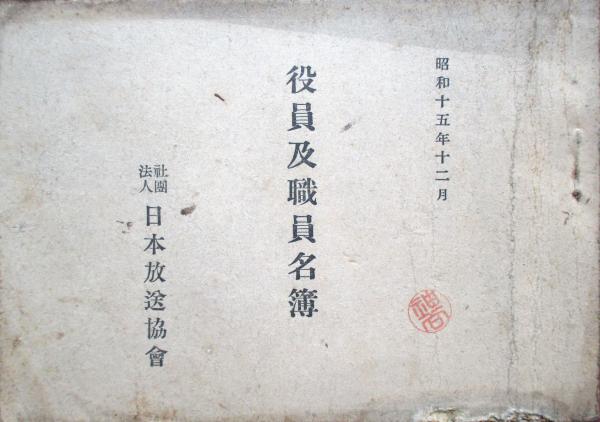 昭和十五年十二月
役員及職員名簿
社團法人
日本放送協會